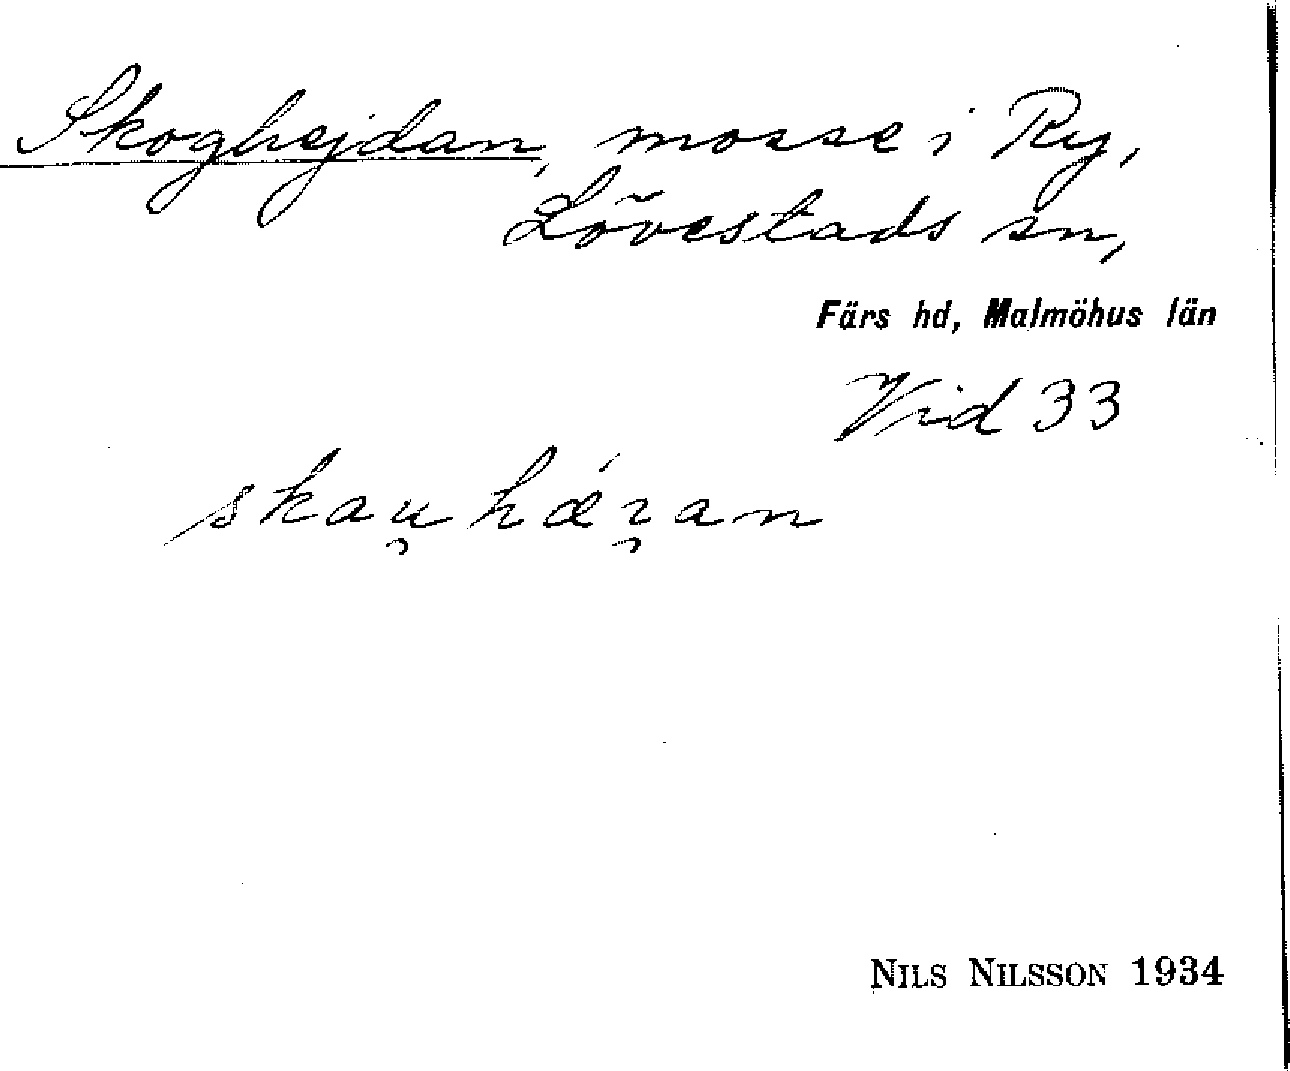 Skoghejdan, mosse i Ry,
Lövestads sn,
Färs hd, Malmöhus län
Vid 33
skau̯hǽɿ̯an
NILS NILSSON 1934